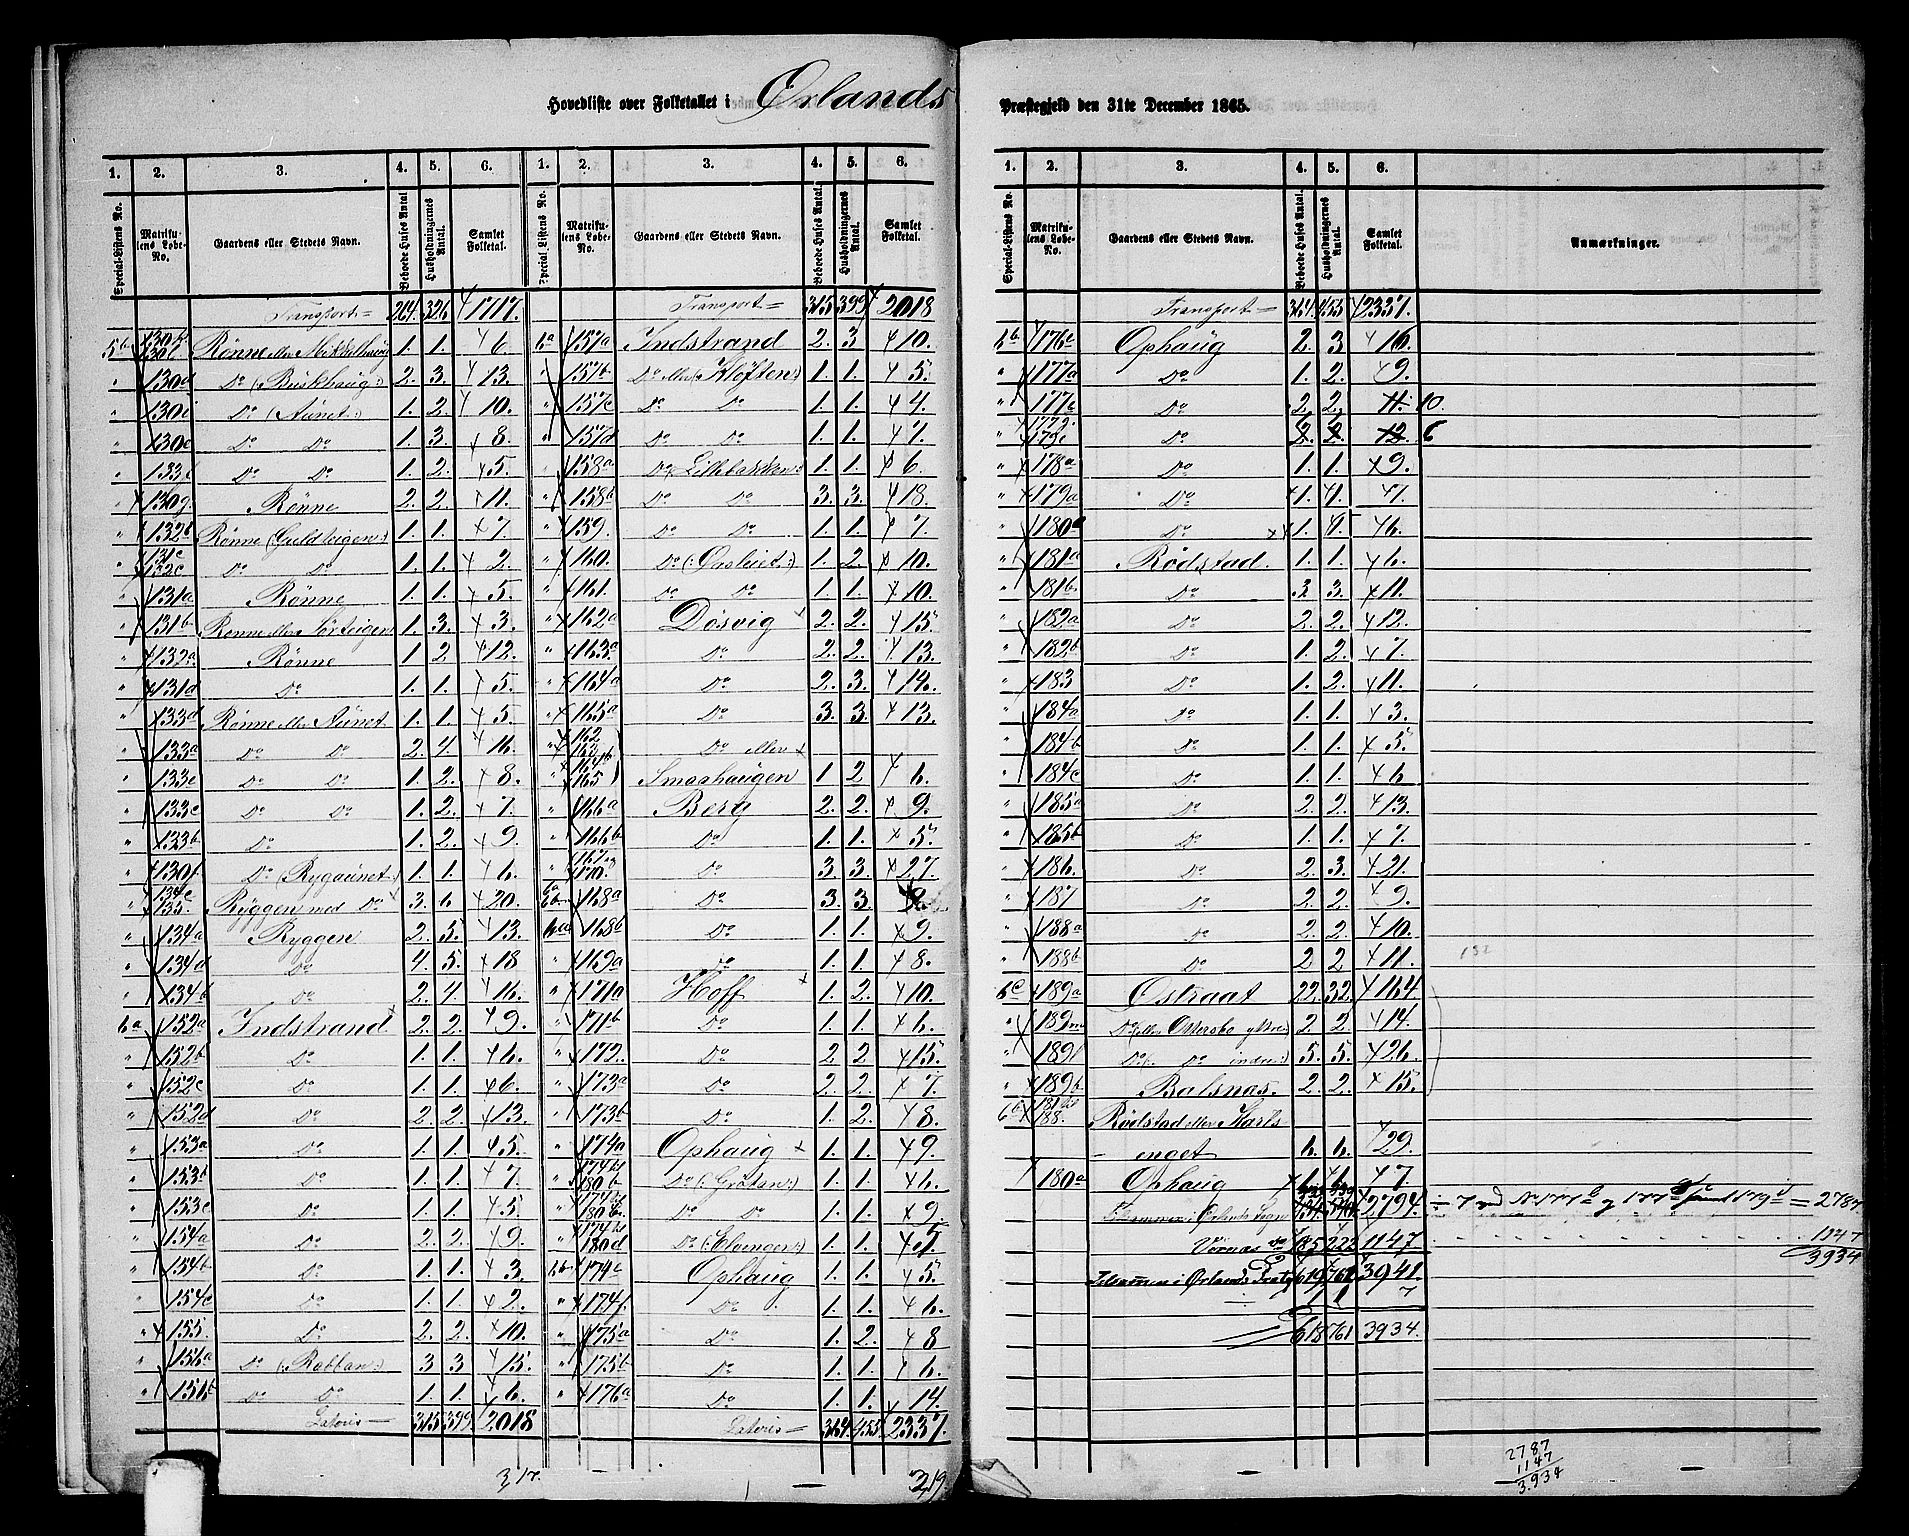 Hovedliste over Folketallet i Ørlands Præstegjeld den 31te December 1865.
1. 2. 3. 4. 5. 6. 1. 2. 3. 4. 5. 6.
Special-Listens No. Matrikulens Løbe-No. Gaardens eller Stedets Navn. Beboede Huses Antal Husholdningernes Antal. Samlet Folketal. Special-Listens No. Matrikulens Løbe-No. Gaardens eller Stedets Navn. Beboede Huses Antal. Husholdningernes Antal. Samlet Folketal.
Transport 264. 326 1717.
5b 130c Rønne eller Mikkelhaug 1. 1. 6.
" 130d Do (Buskhaug:) 2. 3. 13.
" 130i Do (Aunet:) 1. 2. 10.
" 130e Do Do 1. 3. 8.
" 133f Do Do 1. 2. 5.
" 130g Rønne 2. 2. 11.
" 132b Rønne (Guldteigen:) 1. 1. 7.
" 131c 132c Do Do 1. 1. 2.
" 131a Rønne 1. 1. 5.
" 131b Rønne eller Sørteigen 1. 3. 3.
" 132a Rønne 1. 2 12.
" 131d Do 1. 1. 5.
" 133d Rønne eller Aunet 1. 1. 5.
" 133a Do Do 2. 4. 16.
" 133e Do Do 1. 2. 8.
" 133c Do Do 1. 2. 7.
" 133b Do 1. 2. 9.
" 130f Do (Rygaunet:) 1. 1. 6.
" 134c 135. Ryggen med Do 3. 6. 20.
" 134a Ryggen 2. 5. 13.
" 134d Do 4. 5. 18
" 134b Do 2. 4. 16.
6a 152a Indstrand 2. 2. 9.
" 152b Do 1. 1. 6.
" 152c Do 1. 1. 6.
" 152d Do 2. 2. 13.
" 153a Do 1. 1. 5.
" 153b Do 1. 1. 7.
" 153c Do 1. 1. 5.
" 154a Do 2. 2. 9.
" 154b Do 1. 1. 3.
" 154c Do 1. 1. 2.
" 155. Do 2. 2. 10.
" 156a Do (Rabban:) 3 3 15.
" 156b Do Do 1. 1. 6.
Lateris 315 399. 2018
317.
Transport 315 399 2018
6a 157a Indstrand 2. 3 10.
" 157b Do eller (Kløften:) 1. 1. 5.
" 157c Do Do 1. 1. 4.
" 157d Do Do 1. 1. 7.
" 158a Do (Lillebakken:) 1. 1. 6.
" 158b Do Do 3. 3. 18.
" 159. Do Do 1. 1. 7.
" 160. Do (:Ørsleiet:) 1. 2. 10.
" 161. Do Do 1. 1. 10.
" 162a Døsvig 2. 2. 15.
" 163a Do 2. 2. 13.
" 164a Do 2. 3. 14.
" 165a Do 3. 3. 13.
" 162 Do eller
" 164b 165 Smaahaugen 1. 2 6.
" 166a Berg 2. 2. 9.
" 166b Do 1. 1. 5.
" 167. 170. Do 3. 3. 27.
6a 6b 168a Do 3. 3.
6a 168b Do 1. 1. 9.
" 169a Do 1. 1. 8.
" 171a Hoff 1. 2. 10.
" 171b Do 1. 1. 6.
" 172. Do 2. 2 15.
" 173a Do 2. 2. 7.
" 173b Do 1. 2. 8.
" 174a Ophaug 1. 1. 9.
" 180b Do (:Grøtan:) 1. 1. 6.
" Do Do 1. 1. 9.
" 180d Do (:Elvingen:) 1. 1. 5.
6b 174c Ophaug 1. 1. 5.
" 174f. Do 1. 1. 6.
" 175a Do 1. 2. 8
" 175b Do 1. 1. 6.
" 176a Do 1. 1. 14.
Lateris 364. 455 2337.
219
1. 2. 3. 4. 5. 6.
Special-Listens No. Matrikulens Løbe-No. Gaardens eller Stedets Navn. Beboede Huses Antal. Husholdningernes Antal. Samlet Folketal. Anmærkninger.
Transport 364. 455 2337.
6b 176c Ophaug 2. 3 16.
" 177a Do 1. 2. 9.
" 177c Do 2. 2. 11. 10.
" 179c Do 2. 2. 12. 6
" 178a Do 1. 1. 9.
" 179a Do 1. 1. 7.
" 180a Do 1. 1. 6.
" 181a Rødstad. 1. 1. 6.
" 181b Do 3 3. 11.
" 182a Do 2. 2. 12.
" 182b Do 1. 2. 7.
" 183 Do 1. 2. 11.
" 184a Do 1. 1. 3.
" 184b Do 1. 1. 5.
" 184c Do 1. 1. 6
" 185a Do 2. 2. 13.
" 185b Do 1. 1. 7.
" 186. Do 2. 3. 21.
" 187 Do 2. 2. 9.
" 188a Do 2. 2. 10.
" 188b Do 2 2 11. 132
6c 189a Østraat 22. 32. 164
" 189m Do (eller Ottersbo ytre:) 2. 2. 14.
" 189l Do (: Do indre:) 5. 5. 26.
" 189b Balsnæs. 2. 2. 15.
6b 188. Rødstad eller Karls
enget 6. 6. 29.
180a Ophaug 1. 1. 7.
Tilsammen i Ørlands Sogn 2794 = 2787
Vörnæs Do 185 222 1147 1147
3934
Tilsammen i Ørlands Prstgj 619 762 3941.
1 1 7
618 761 3934.
2787
1147
3.934